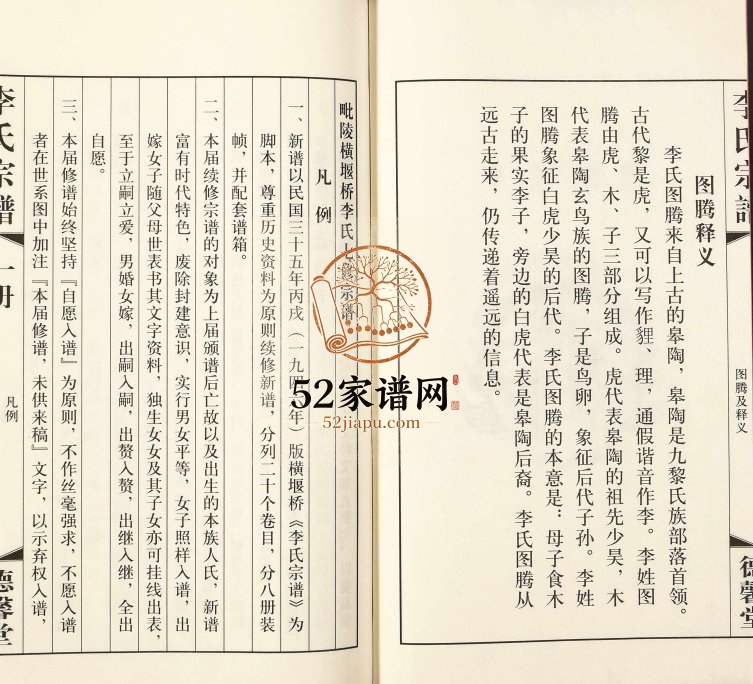 李氏宗谱
图腾及释义
德馨堂
图腾释义
李氏图腾来自上古的皋陶，皋陶是九黎氏族部落首领。
古代黎是虎，又可以写作貍、理，通假谐音作李。李姓图
腾由虎、木、子三部分组成。虎代表皋陶的祖先少昊，木
代表皋陶玄鸟族的图腾，子是鸟卵，象征后代子孙。李姓
图腾象征白虎少昊的后代。李氏图腾的本意是：母子食木
子的果实李子，旁边的白虎代表是皋陶后裔。李氏图腾从
远古走来，仍传递着遥远的信息。
毗陵横堰桥李氏修宗谱
凡例
一、新谱以民国三十五年丙戌（一九四年）版横堰桥《李氏宗谱》为
脚本，尊重历史资料为原则续修新谱，分列二十个卷目，分八册装
帧，并配套谱箱。
二、本届续修宗谱的对象为上届颁谱后亡故以及出生的本族人氏，新谱
富有时代特色，废除封建意识，实行男女平等，女子照样入谱，出
嫁女子随父母世表书其文字资料，独生女女及其子女亦可挂线出表，
至于立嗣立爱，男婚女嫁，出嗣入嗣，出赘入赘，出继入继，全出
自愿。
三、本届修谱始终坚持『自愿入谱』为原则，不作丝毫强求，不愿入谱
者在世系图中加注『本届修谱，未供来稿』文字，以示弃权入谱，
李氏宗谱
一册
凡例
德馨堂
52家谱网
52jiapu.com